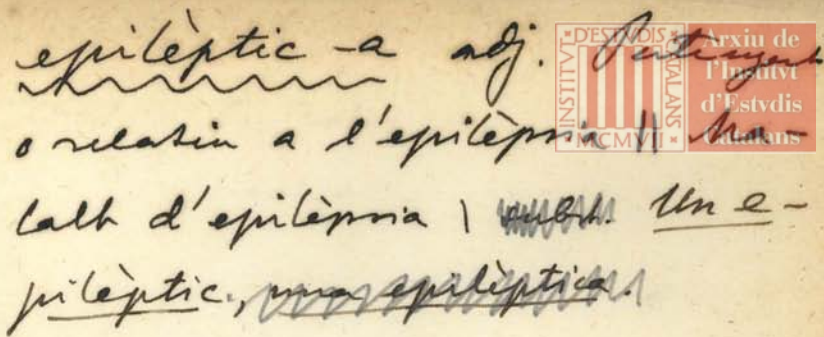 epilèptic -a adj. Pertanyent
o relatiu a l'epilèpsia || Ma-
lalt d'epilèpsia | subst. Un e-
pilèptic, una epilèptica.
INSTITVT D'ESTVDIS CATALANS
MCMVII
Arxiu de
l'Institvt
d'Estvdis
Catalans